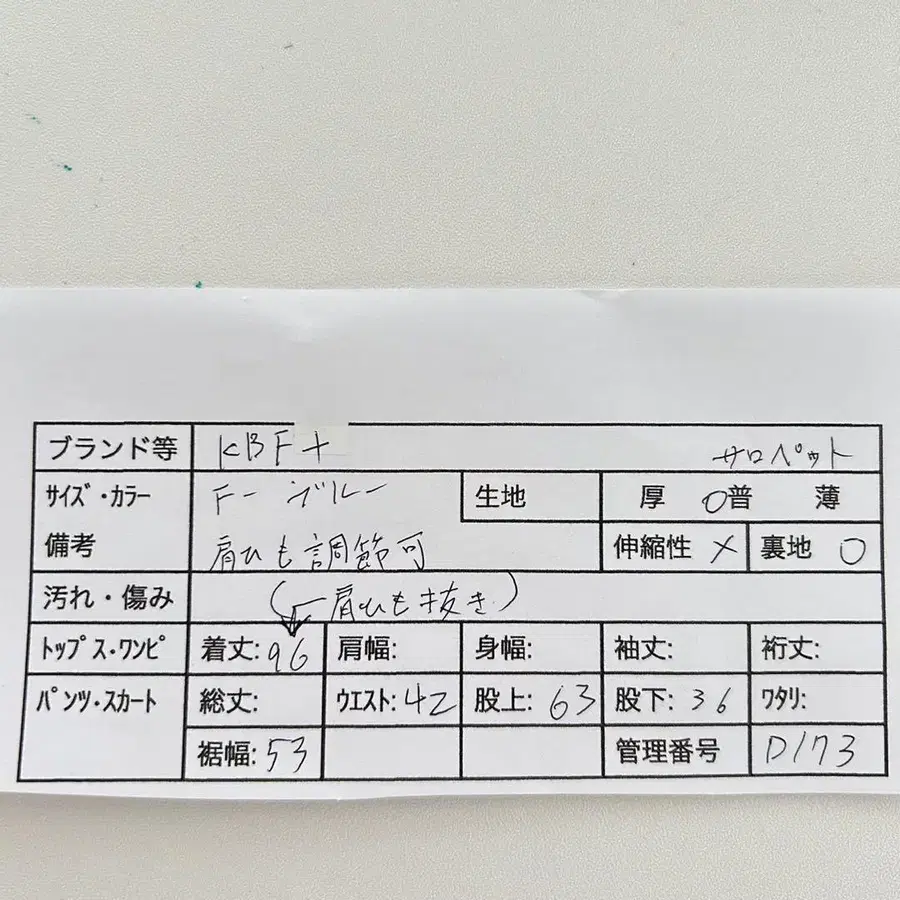 ブランド等 KBF+ サロペット
サイズ・カラー F- ブルー 生地 厚 ○普 薄
備考 肩ひも調節可 伸縮性 × 裏地 ○
汚れ・傷み (←肩ひも抜き)
トップス・ワンピ 着丈:96 肩幅: 身幅: 袖丈: 裄丈:
パンツ・スカート 総丈: ウエスト:42 股上:63 股下:36 ワタリ:
裾幅:53 管理番号 D173